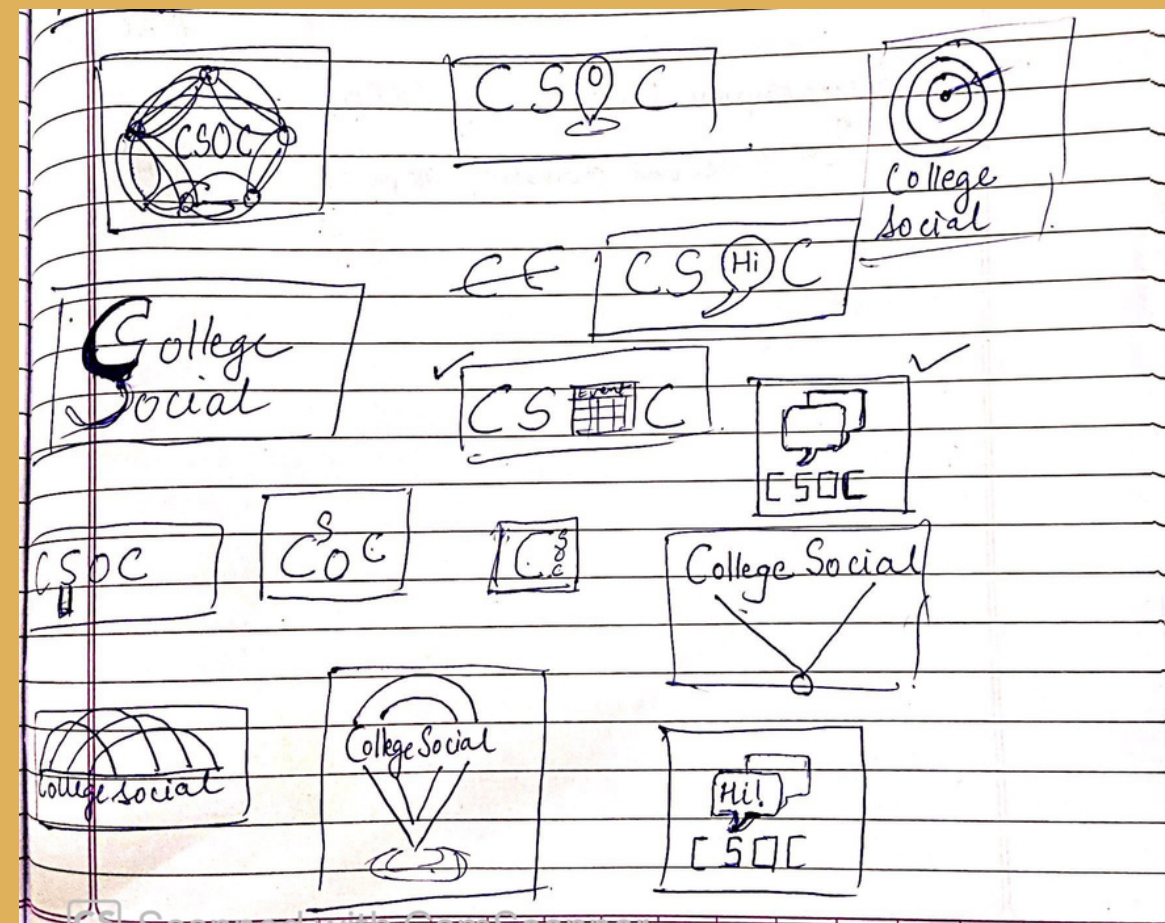 CSOC
CSOC
College
Social
CE
CS Hi C
College
Social
CS Event C
CSOC
CSOC
CSOC
CSOC
College Social
College Social
College Social
Hi!
CSOC
CS Scanned with CamScanner